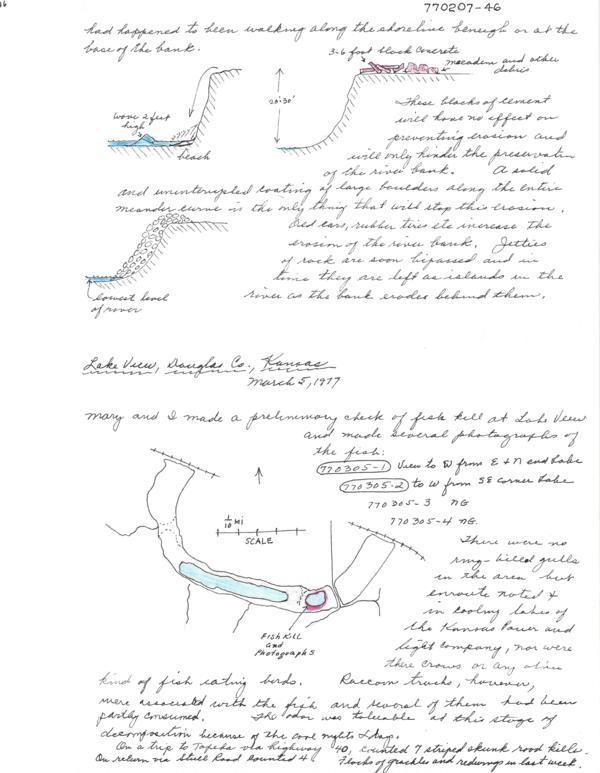 770207-46
had happened to been walking along the shoreline beneigh or at the
base of the bank.
3-6 foot block concrete
macadem and other
debris
wave 2 feet
high
beach
20-30'
These blocks of cement
will have no effect on
preventing erosion and
will only hinder the preservation
of the river bank. A solid
and uninterrupted coating of large boulders along the entire
meander curve is the only thing that will stop this erosion.
Old cars, rubber tires etc increase the
erosion of the river bank. Jetties
of rock are soon bipassed and in
time they are left as islands in the
river as the bank erodes behind them.
lowest level
of river
Lake View, Douglas Co., Kansas
March 5, 1977
Mary and I made a preliminary check of fish kill at Lake View
and made several photographs of
the fish:
770305-1 View to W from E + N end Lake
770305-2 to W from SE corner Lake
770305-3 NG
770305-4 NG.
1/10 Mi
SCALE
There were no
ring-billed gulls
in the area but
enroute noted 4
in cooling lakes of
the Kansas Power and
light company, nor were
there crows or any other
Fish Kill
and
Photographs
kind of fish eating birds. Raccoon tracks, however,
were associated with the fish and several of them had been
partly consumed. The odor was tolerable at this stage of
decomposition because of the cool nights & days.
On a trip to Topeka via highway 40, counted 7 striped skunk road kills.
On return via Stull Road counted 4. Flocks of grackles and redwings in last week.